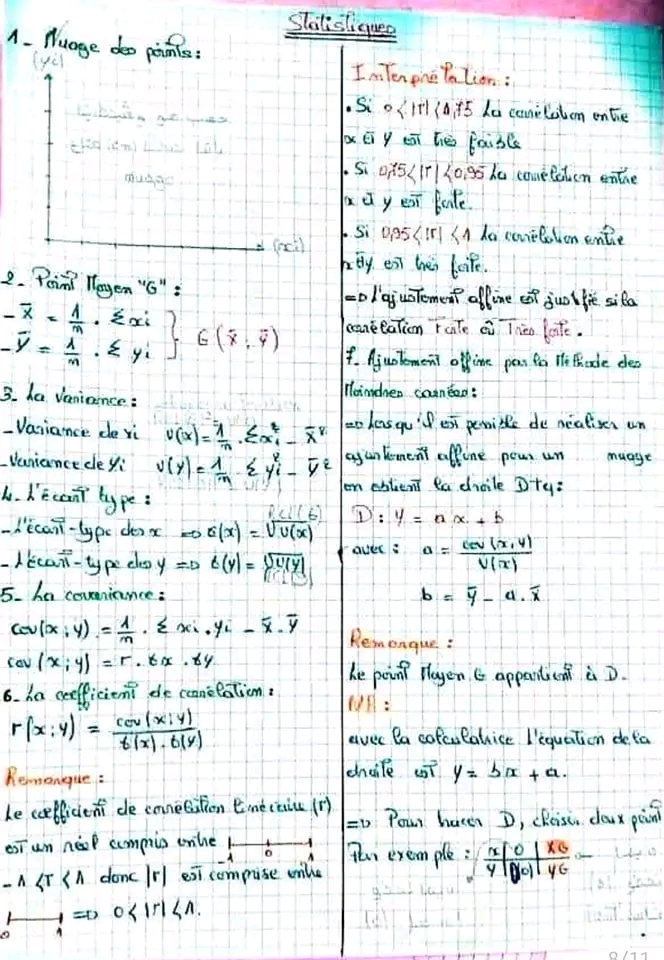 Statistiques
1- Nuage des points:
(yi)
(xi)
nuage
2- Point Moyen "G":
- x̄ = 1/n . Σ xi
- ȳ = 1/n . Σ yi } G(x̄, ȳ)
3. La Variance:
- Variance de xi V(x) = 1/n . Σxi² - x̄²
- Variance de yi V(y) = 1/n Σ yi² - ȳ²
4. L'écart type:
- L'écart-type des x => σ(x) = √V(x)
- L'écart-type des y => σ(y) = √V(y)
5- La covariance:
cov(x;y) = 1/n . Σ xi.yi - x̄.ȳ
cov(x;y) = r . σx . σy
6. La coefficient de corrélation:
r(x;y) = cov(x;y)/σ(x).σ(y)
Remarque:
Le coefficient de corrélation linéaire (r)
est un réel compris entre -1 0 1
-1 < r < 1 donc |r| est comprise entre
0 1 => 0 < |r| < 1.
Interprétation:
. Si 0 < |r| < 0,75 La corrélation entre
x et y est très faible
. Si 0,75 < |r| < 0,95 La corrélation entre
x et y est forte.
. Si 0,95 < |r| < 1 La corrélation entre
x et y est très forte.
=> L'ajustement affine est justifié si la
corrélation Forte ou Très forte.
7. Ajustement affine par la Méthode des
Moindres carrées:
=> Lorsqu'il est possible de réaliser un
ajustement affine pour un nuage
on obtient la droite D tq:
D: y = a x + b
avec: a = cov(x,y)/V(x)
b = ȳ - a . x̄
Remarque:
Le point Moyen G appartient à D.
NB:
avec la calculatrice l'équation de la
droite est y = bx + a.
=> Pour tracer D, choisir deux point
Par exemple: x | 0 | xG
y | | yG
8/11